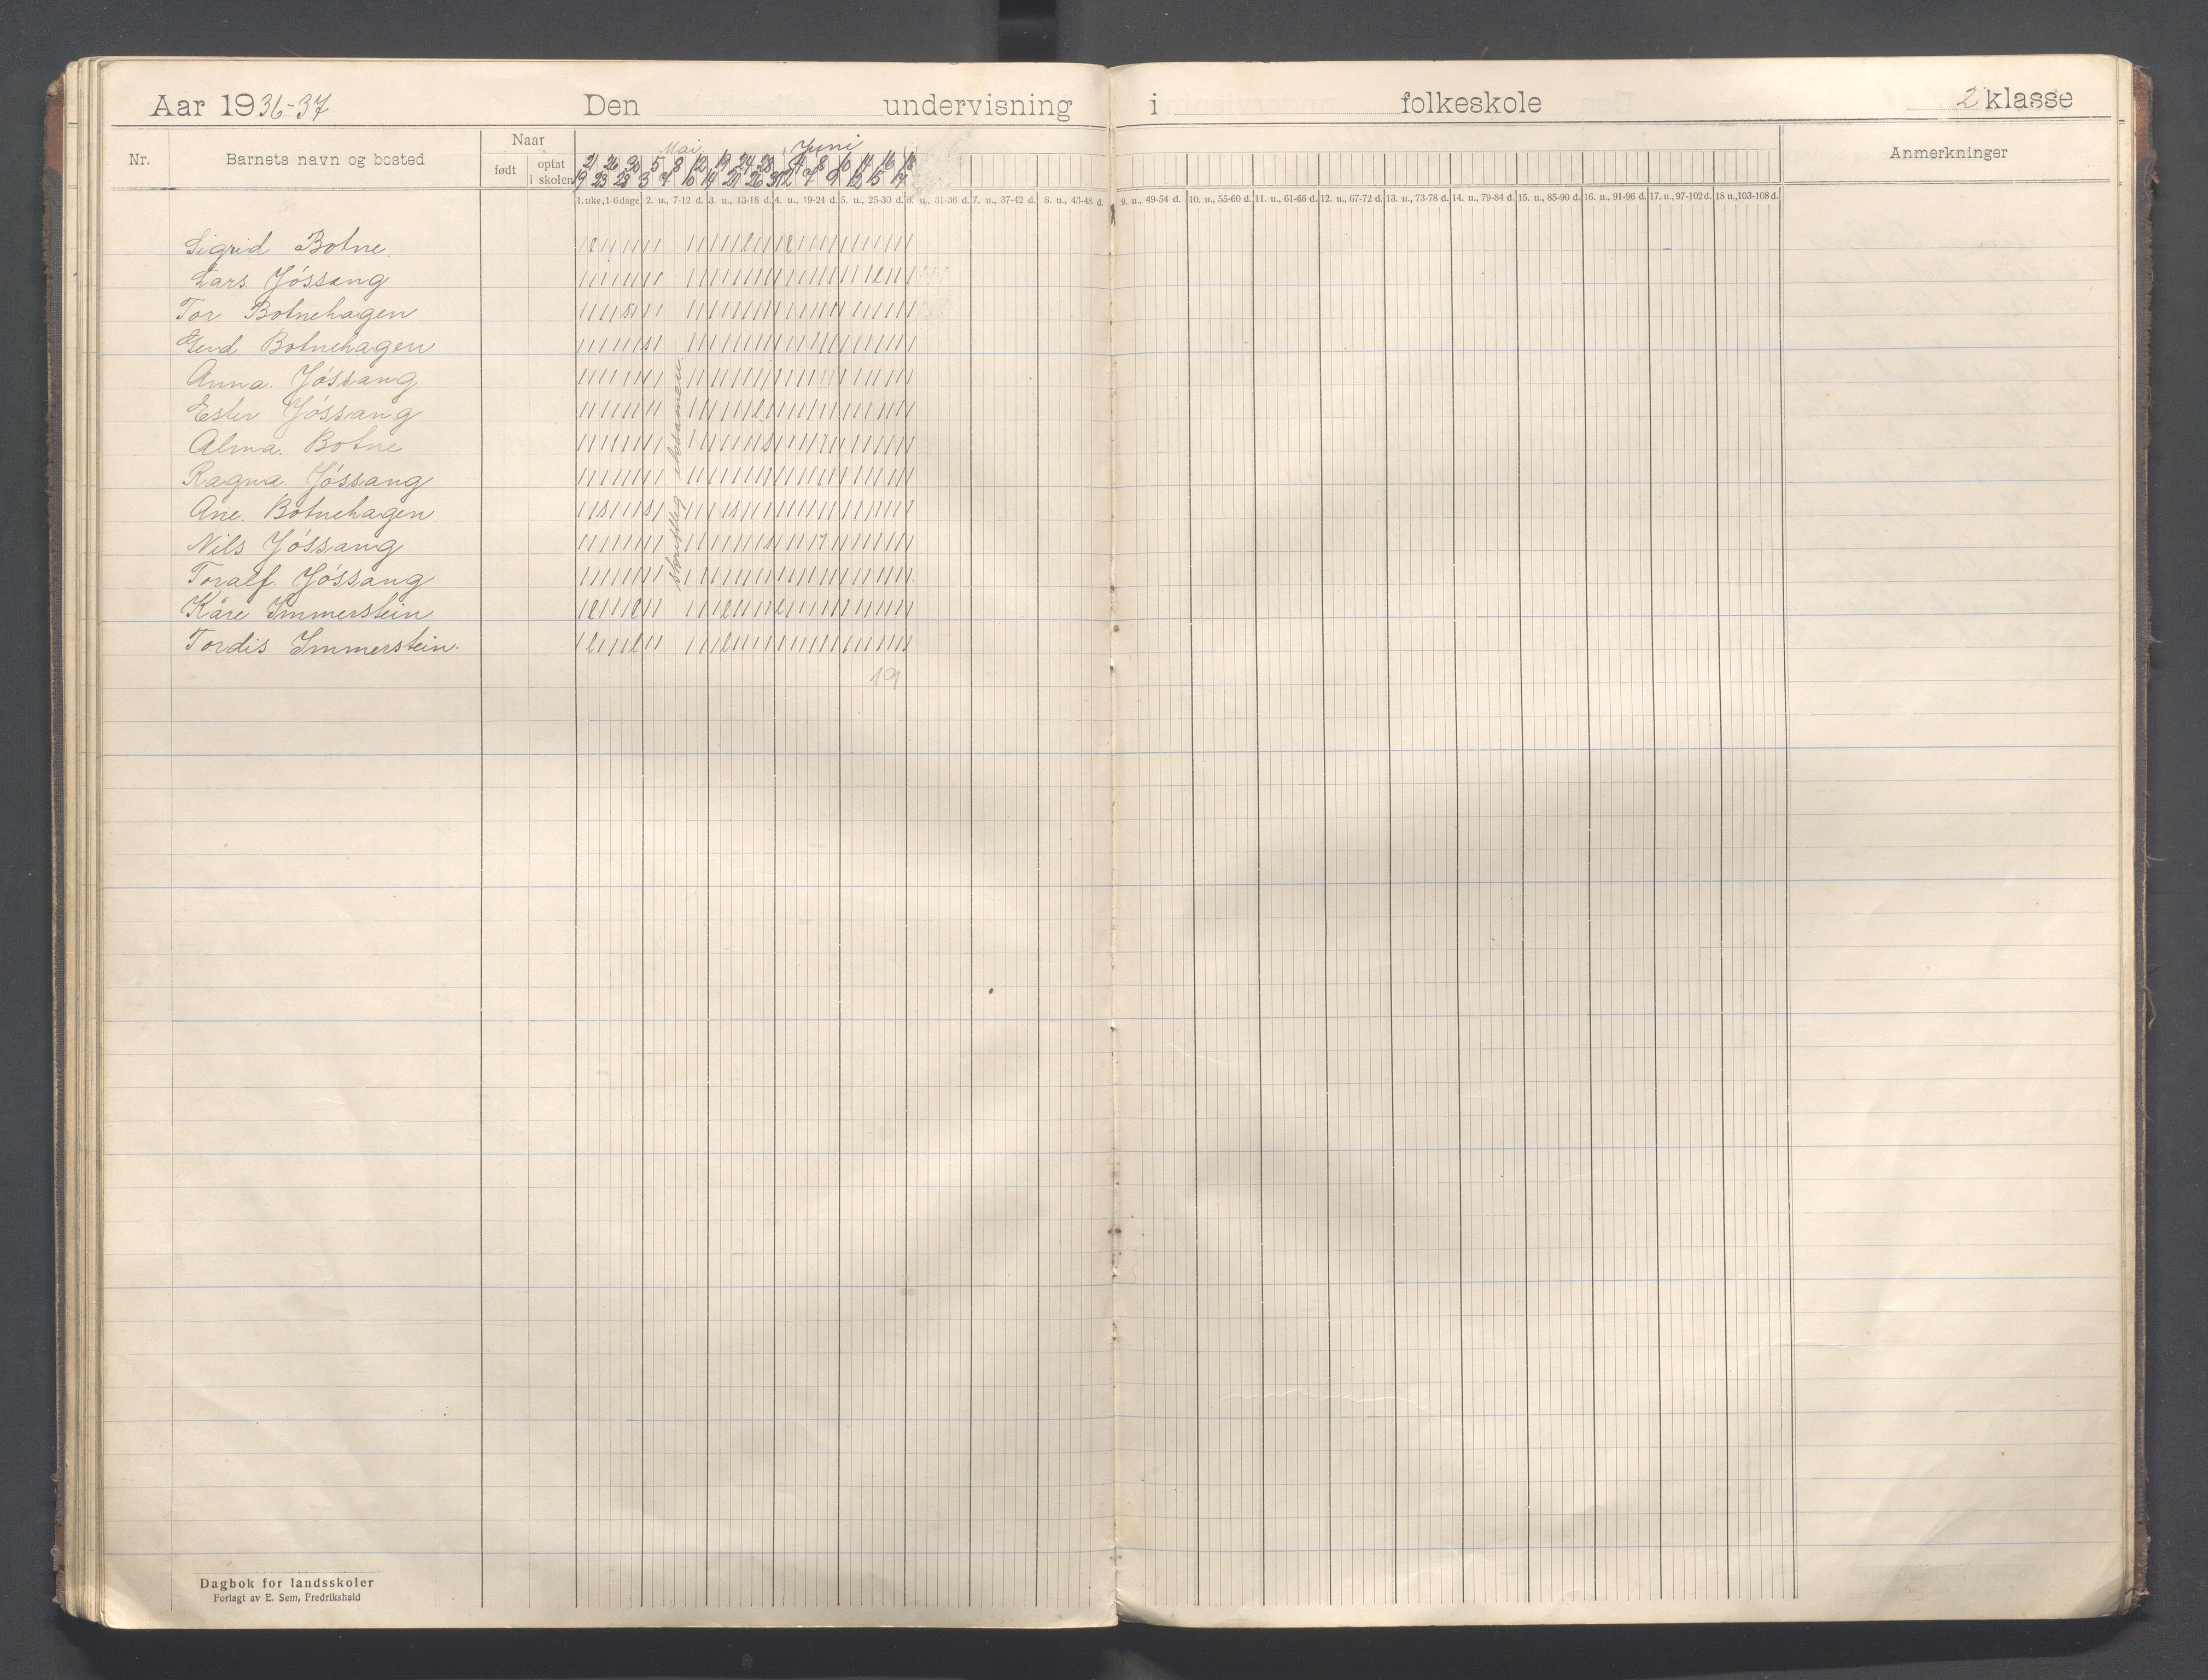 Aar 1936-37 Den undervisning i folkeskole 2 klasse
Nr. Barnets navn og bosted Naar Anmerkninger
født optat i skolen
Mai Juni
21 26 30 5 8 12 19 24 28 4 8 10 14 16 18
19 23 28 3 7 10 14 21 26 31 2 7 9 12 15 17
1. uke, 1-6 dage 2. u., 7-12 d. 3. u., 13-18 d. 4. u., 19-24 d. 5. u., 25-30 d. 6. u., 31-36 d. 7. u., 37-42 d. 8. u., 43-48 d. 9. u., 49-54 d. 10. u., 55-60 d. 11. u., 61-66 d. 12. u., 67-72 d. 13. u., 73-78 d. 14. u., 79-84 d. 15. u., 85-90 d. 16. u., 91-96 d. 17. u., 97-102 d. 18 u., 103-108 d.
Sigrid Botne.
Lars Jóssang
Tor Botnehagen
Botnehagen
Anna. Jóssang
Ester Jóssang
Alma. Botne
Ragna. Jóssang
Ane. Botnehagen
Nils Jóssang
Toralf. Jóssang
Kåre Immerstein
Tordis Immerstein.
skriftleg eksamen
19
Dagbok for landsskoler
Forlagt av E. Sem, Fredrikshald